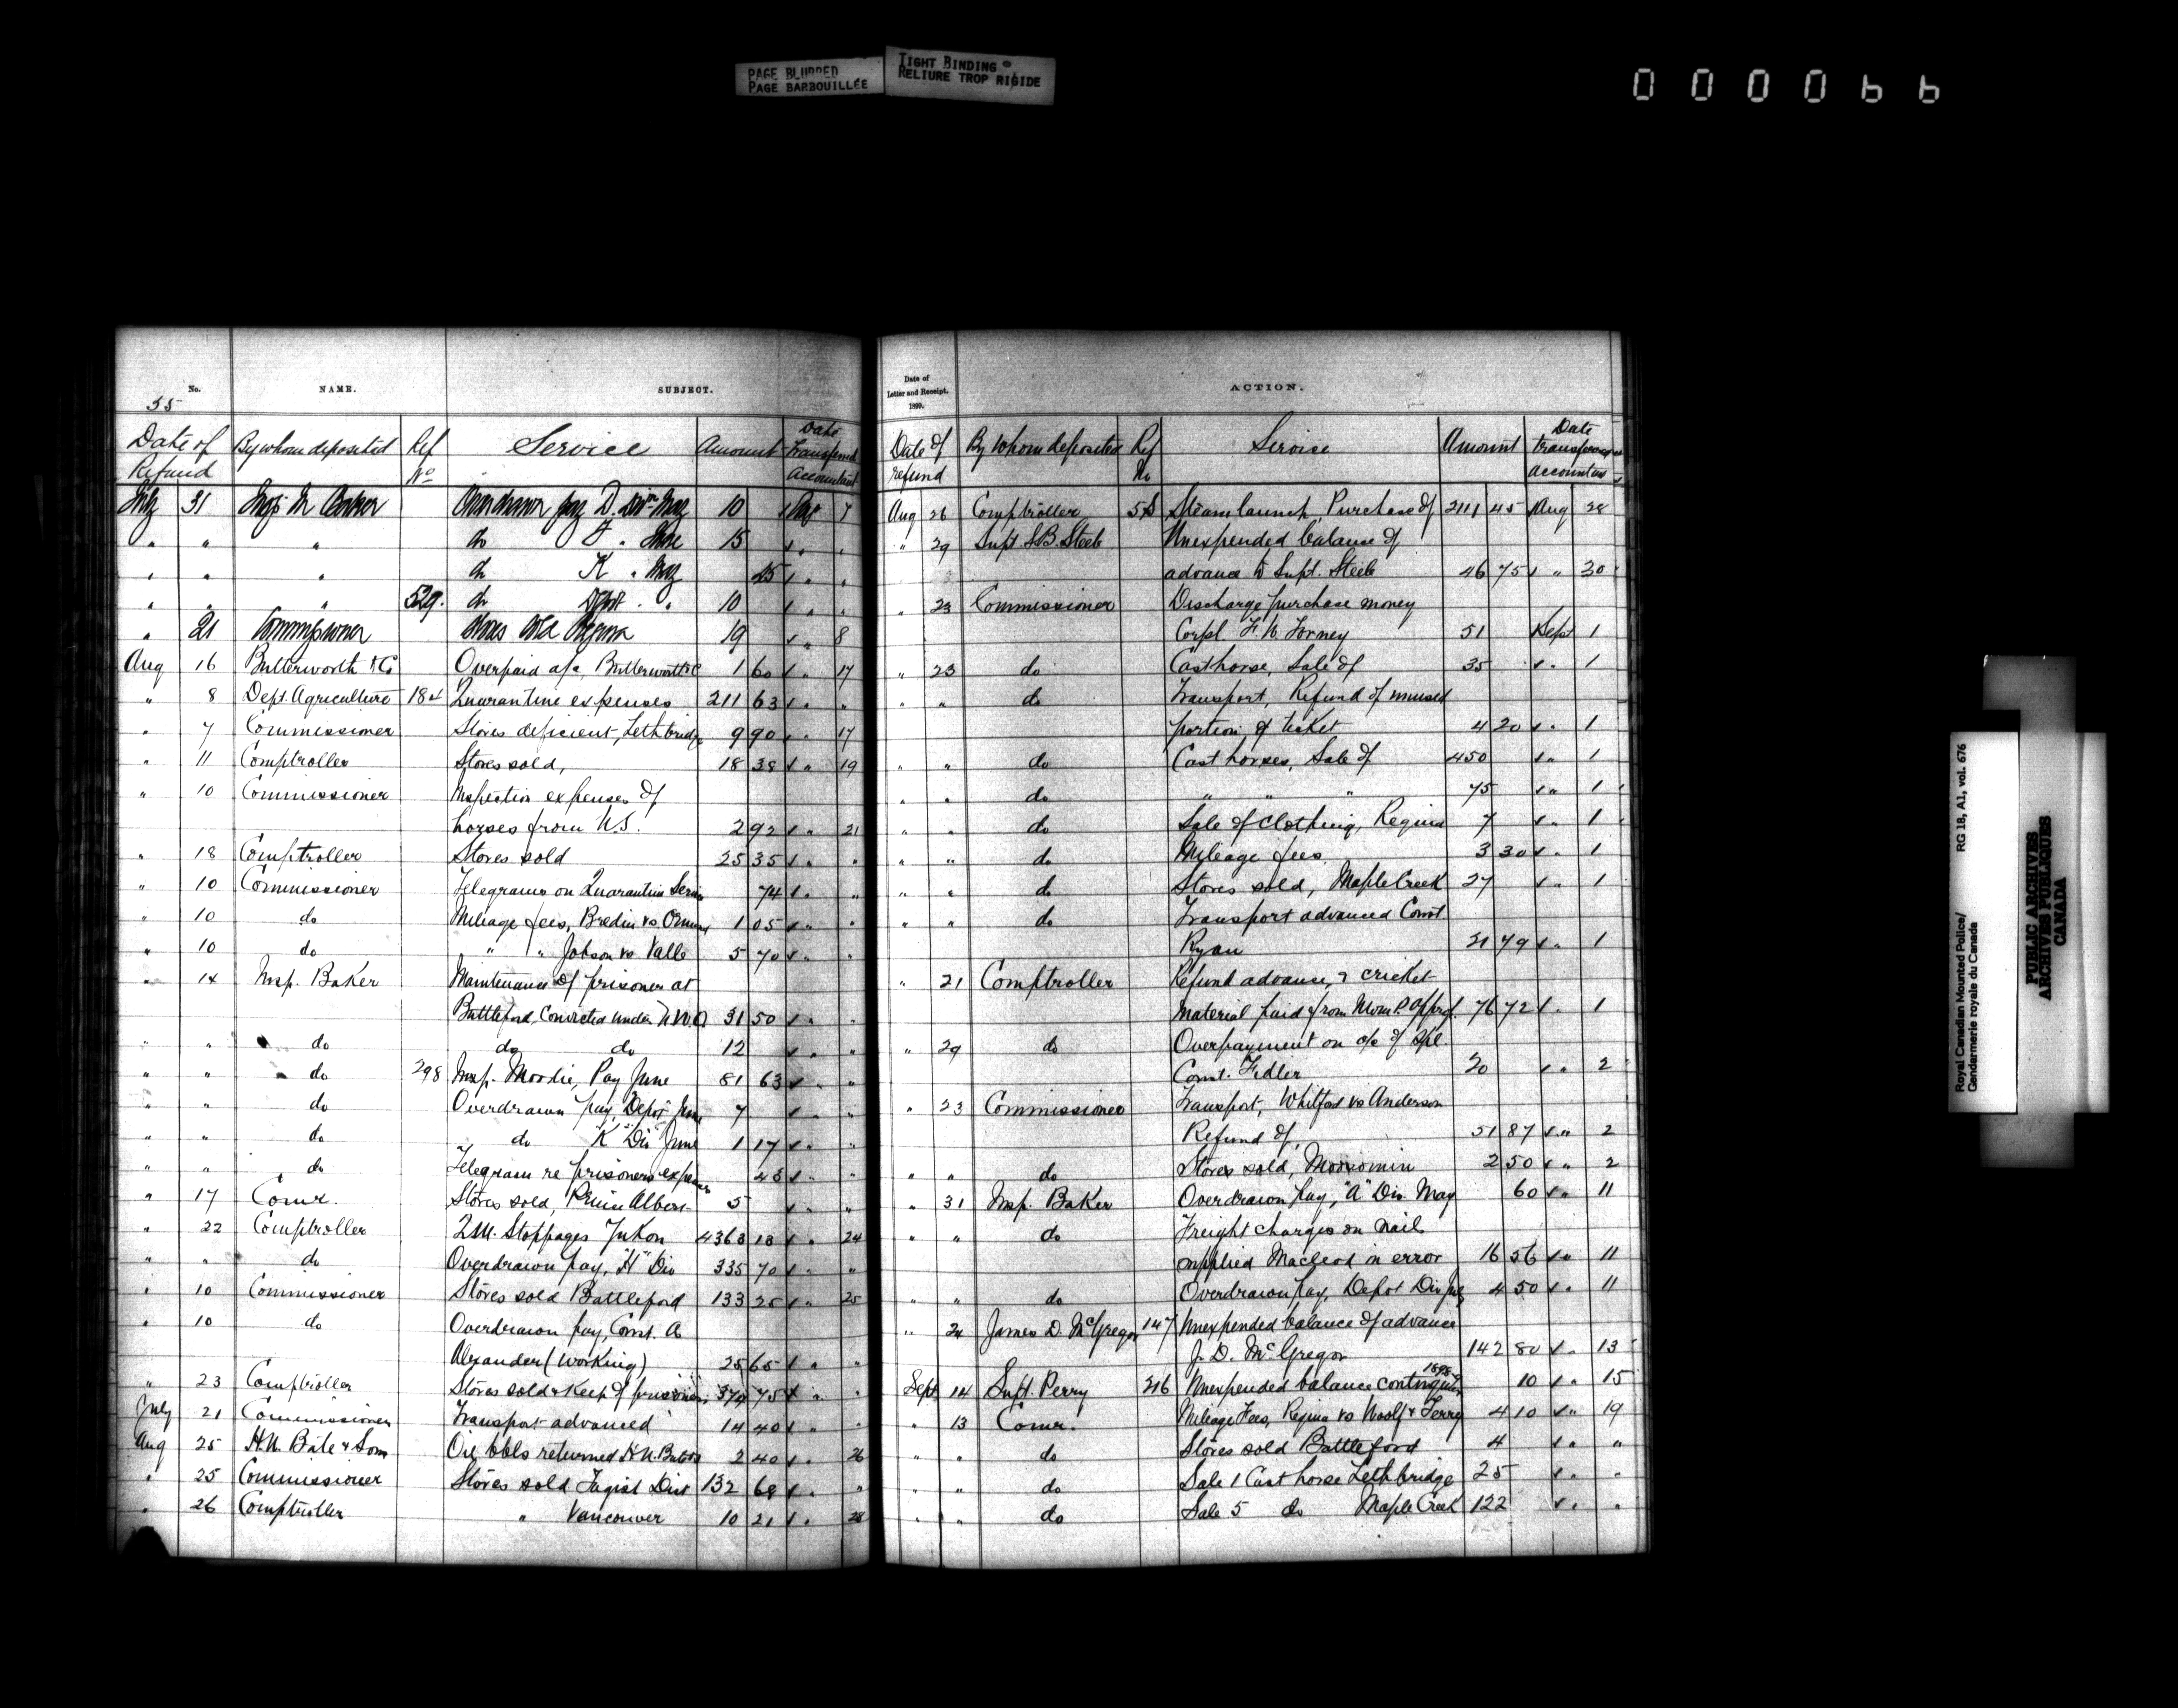 PAGE BLURRED
PAGE BARBOUILLÉE
TIGHT BINDING
RELIURE TROP RIGIDE
000066
No. NAME. SUBJECT.
55
Date of Refund By whom deposited Ref No Service Amount Date Transferred Accountant
July 31 Insp. Baker Overdrawn pay D. Divn May 10 Aug 7
" " " do F " June 15 " "
" " " do K " May 25 " "
" " " 529. do Depot " " 10 " "
" 21 Commissioner Stores sold Regina 19 " 8
Aug 16 Butterworth & Co Overpaid a/c, Butterworth & C 1 60 " 17
" 8 Dept. Agriculture 184 Quarantine expenses 211 63 " "
" 7 Commissioner Stores deficient, Lethbridge 9 90 " 17
" 11 Comptroller Stores sold, 18 38 " 19
" 10 Commissioner Inspection expenses of
horses from U.S. 2 92 " 21
" 18 Comptroller Stores sold 25 35 " "
" 10 Commissioner Telegrams on Quarantine Service 74 " "
" 10 do Mileage fees, Bredin vs 1 05 " "
" 10 do " " Jobson vs Valle 5 70 " "
" 14 Insp. Baker Maintenance of prisoner at
Battleford, Convicted under N.W.O 31 50 " "
" " do do do 12 " "
" " do 298 Insp. Moodie, Pay June 81 63 " "
" " do Overdrawn pay, Depot June 7 " "
" " do do "K" Div June 1 17 " "
" " do Telegram re prisoners expenses 43 " "
" 17 Comr. Stores sold, Prince Albert 5 " "
" 22 Comptroller Q.M. Stoppages Yukon 4363 18 " 24
" " do Overdrawn pay, "H" Div 335 70 " "
" 10 Commissioner Stores sold Battleford 133 25 " 25
" 10 do Overdrawn pay, Const. A
Alexander (Working) 25 65 " "
" 23 Comptroller Stores sold & Keep of prisoners 374 75 " "
July 21 Commissioner Transport advanced 14 40 " "
Aug 25 H.N. Bate & Sons Oil bbls returned H.N. Bate & S 2 40 " 26
" 25 Commissioner Stores sold Tagish Dist 132 68 " "
" 26 Comptroller " Vancouver 10 21 " 28
Date of Letter and Receipt. 1899. ACTION.
Date of refund By Whom deposited Ref No Service Amount Date transferred accountant
Aug 26 Comptroller 58 Steam launch, Purchase of 2111 45 Aug 28
" 29 Supt. S.B. Steele Unexpended balance of
advance to Supt. Steele 46 75 " 30
" 23 Commissioner Discharge purchase money
Corpl F. W. Forney 51 Sept 1
" 23 do Cast horse, Sale of 35 " 1
" " do Transport, Refund of unused
portion of ticket 4 20 " 1
" " do Cast horses, Sale of 450 " 1
" " do " " " 75 " 1
" " do Sale of Clothing, Regina 7 " 1
" " do Mileage fees. 3 30 " 1
" " do Stores sold, Maple Creek 27 " 1
" " do Transport advanced Const.
Ryan 21 79 " 1
" 21 Comptroller Refund advance, cricket
Material paid from Moun P. Approp. 76 72 " 1
" 29 do Overpayment on a/c of Spl.
Const. Fidler 20 " 2
" 23 Commissioner Transport, Whitford vs Anderson
Refund of, 51 87 " 2
" " do Stores sold, Moosomin 2 50 " 2
" 31 Insp. Baker Overdrawn pay, "A" Div. May 60 " 11
" " do Freight charges on nails
supplied Macleod in error 16 56 " 11
" " do Overdrawn pay, Depot Div July 4 50 " 11
" 24 James D. McGregor 147 Unexpended balance of advance
J. D. McGregor 142 80 " 13
Sept 14 Supt. Perry 316 Unexpended balance contingencies 10 " 15
" 13 Comr. Mileage Fees, Regina vs Woolf & Terry 4 10 " 19
" " do Stores sold Battleford 4 " "
" " do Sale 1 Cast horse Lethbridge 25 " "
" " do Sale 5 do Maple Creek 122 " "
Royal Canadian Mounted Police/
Gendarmerie royale du Canada
RG 18, A1, vol. 676
PUBLIC ARCHIVES
ARCHIVES PUBLIQUES
CANADA